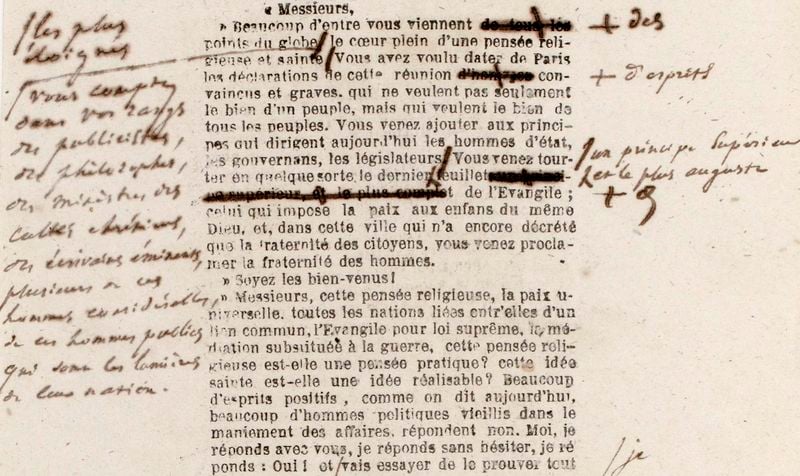 les plus
éloignés
vous comptez
dans vos rangs
des publicistes,
des philosophes,
des ministres des
cultes chrétiens,
des écrivains éminents,
plusieurs de ces
hommes considérables,
de ces hommes publics
qui sont les lumières
de leur nation.
« Messieurs,
» Beaucoup d'entre vous viennent de tous les
points du globe, le cœur plein d'une pensée reli-
gieuse et sainte. Vous avez voulu dater de Paris
les déclarations de cette réunion d'hommes con-
vaincus et graves. qui ne veulent pas seulement
le bien d'un peuple, mais qui veulent le bien de
tous les peuples. Vous venez ajouter aux princi-
pes qui dirigent aujourd'hui les hommes d'état,
les gouvernans, les législateurs. Vous venez tour-
ter en quelque sorte le dernier feuillet
supérieur, et le plus complet de l'Evangile ;
celui qui impose la paix aux enfans du même
Dieu, et, dans cette ville qui n'a encore décrété
que la fraternité des citoyens, vous venez procla-
mer la fraternité des hommes.
» Soyez les bien-venus !
» Messieurs, cette pensée religieuse, la paix u-
niverselle. toutes les nations liées entr'elles d'un
lien commun, l'Evangile pour loi suprême, la mé-
diation substituée à la guerre, cette pensée reli-
gieuse est-elle une pensée pratique? cette idée
sainte est-elle une idée réalisable? Beaucoup
d'esprits positifs , comme on dit aujourd'hui,
beaucoup d'hommes politiques vieillis dans le
maniement des affaires, répondent non. Moi, je
réponds avec vous, je réponds sans hésiter, je ré
ponds : Oui ! et vais essayer de le prouver tout
+ des
+ d'esprits
un principe supérieur
et le plus auguste
+
je